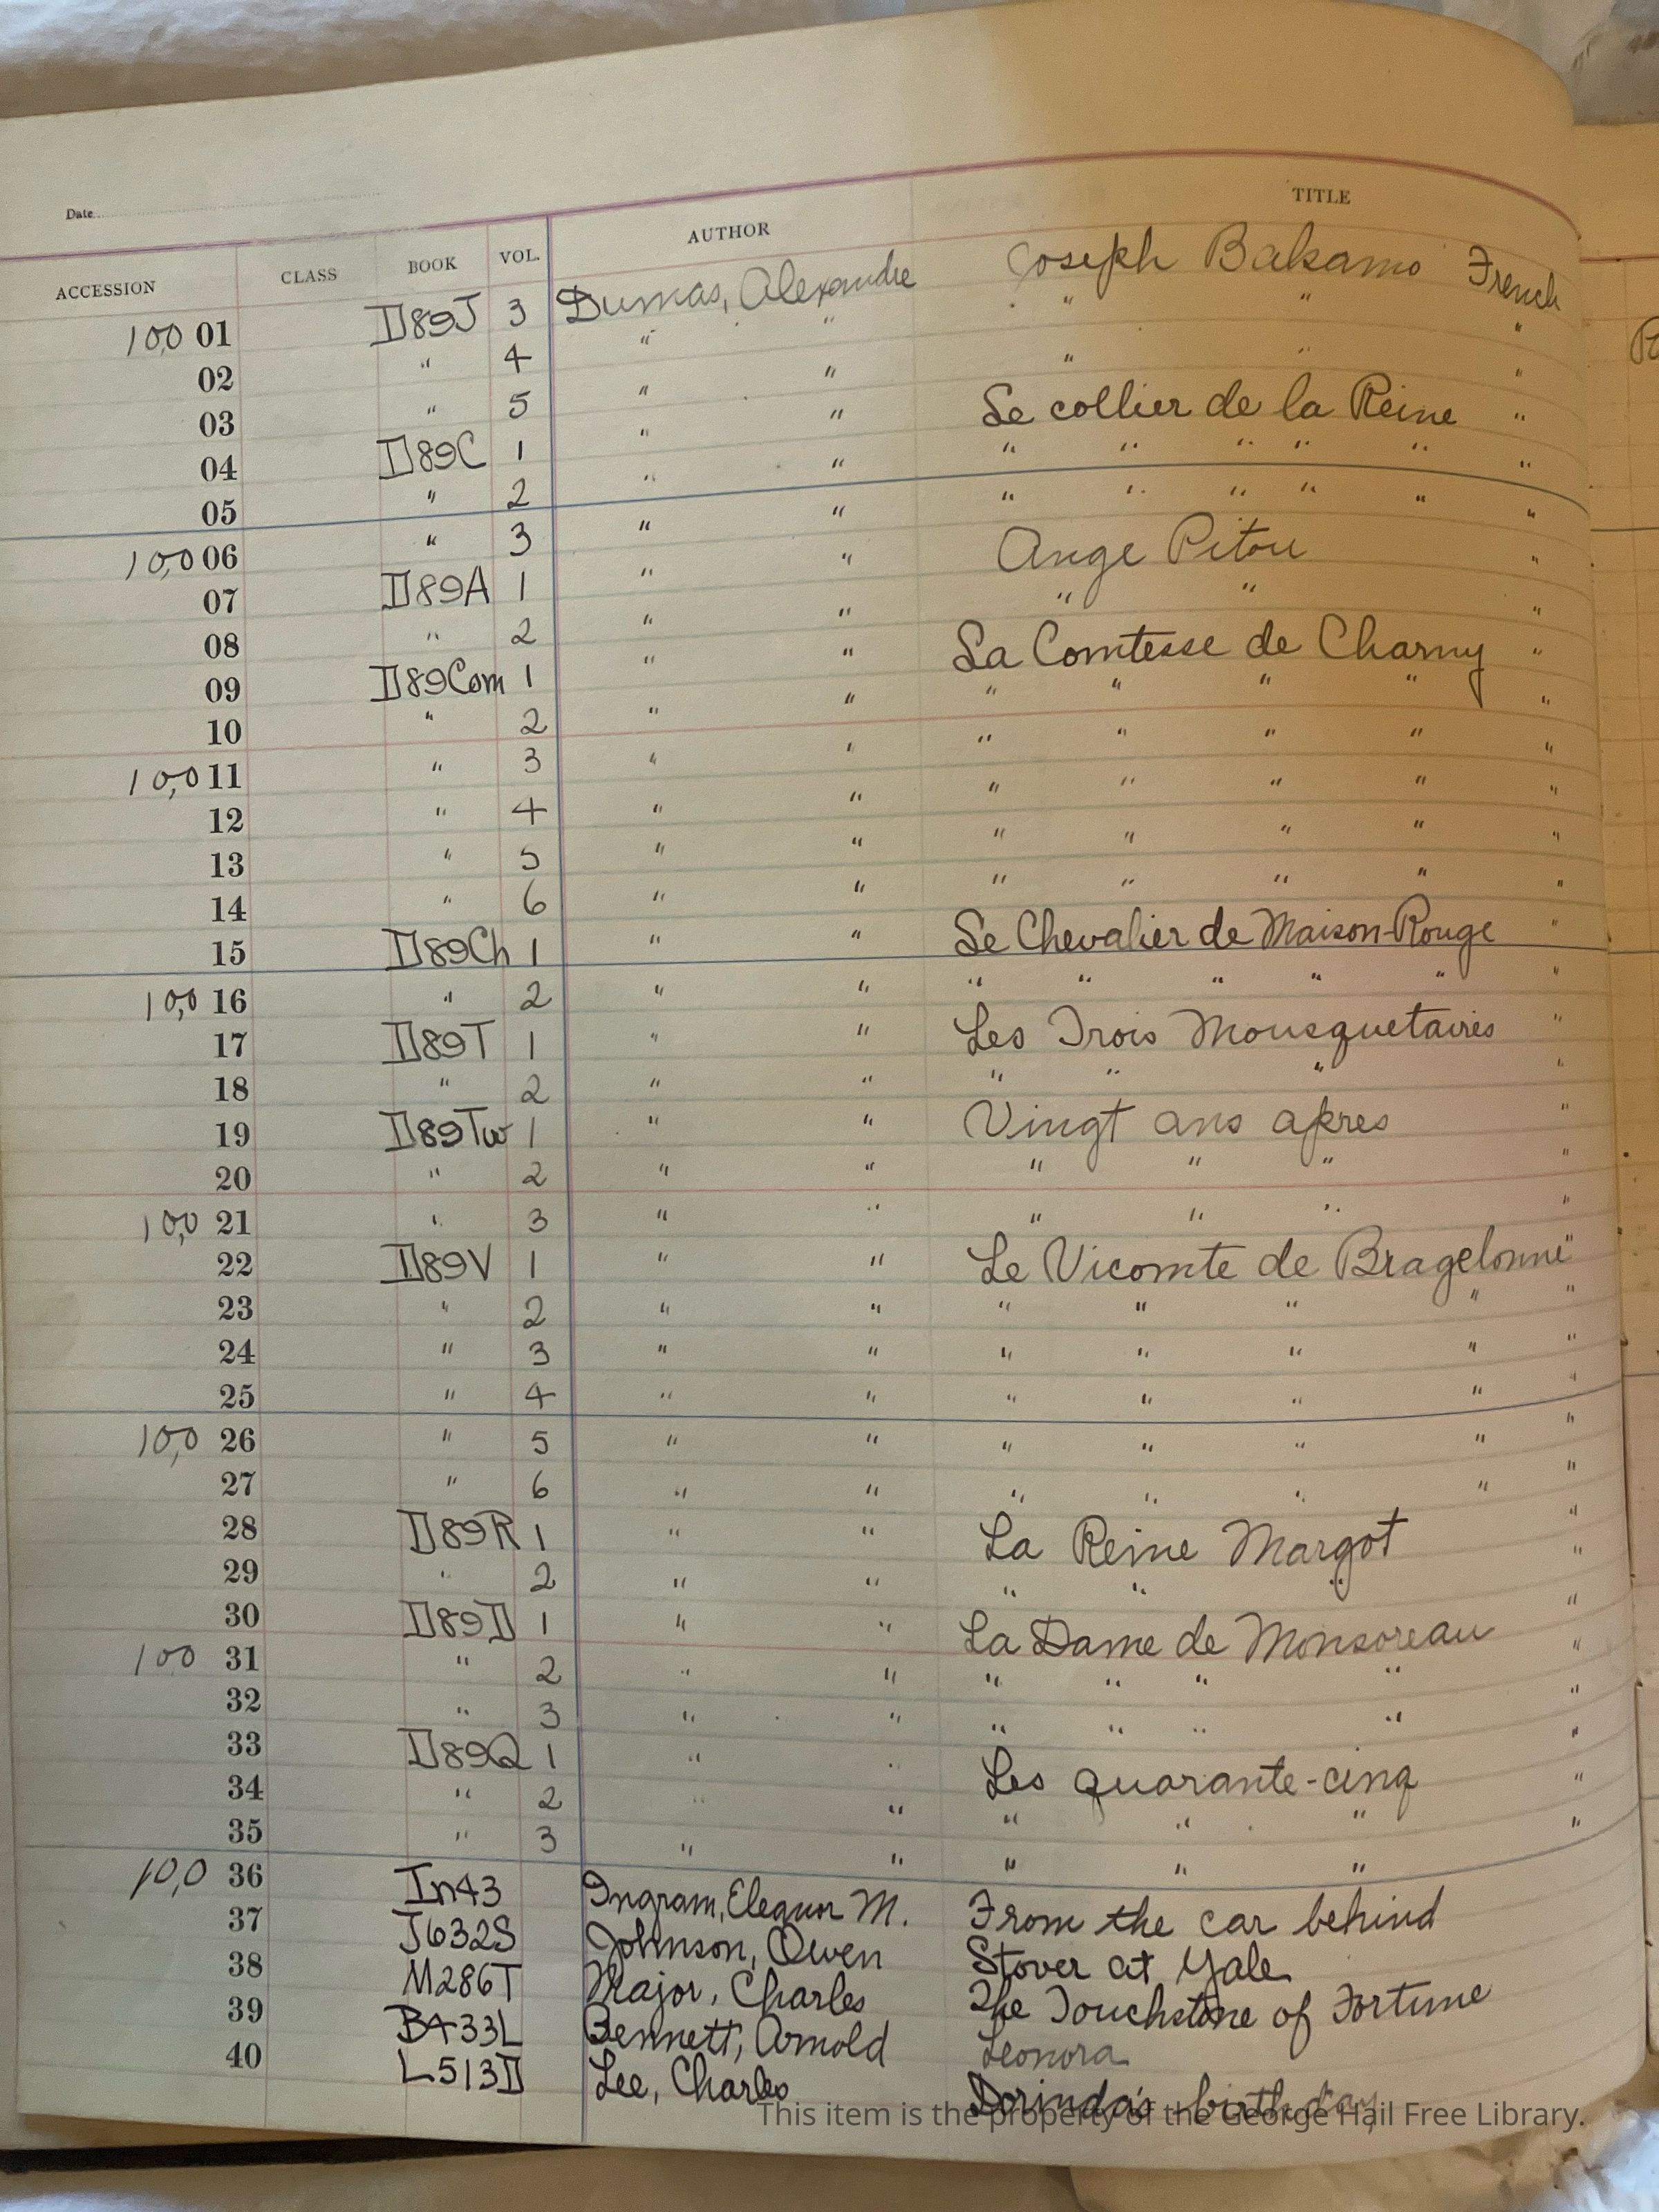 Date
ACCESSION CLASS BOOK VOL. AUTHOR TITLE
10,001 D89J 3 Dumas, Alexandre Joseph Balsamo French
02 " 4 " " " " "
03 " 5 " " " " "
04 D89C 1 " " Le collier de la Reine "
05 " 2 " " " " " " " "
10,006 " 3 " " " " " " " "
07 D89A 1 " " Ange Pitou "
08 " 2 " " " " "
09 D89Com 1 " " La Comtesse de Charny "
10 " 2 " " " " " " "
10,011 " 3 " " " " " " "
12 " 4 " " " " " " "
13 " 5 " " " " " " "
14 " 6 " " " " " " "
15 D89Ch 1 " " Le Chevalier de Maison-Rouge "
10,016 " 2 " " " " " " " "
17 D89T 1 " " Les Trois Mousquetaires "
18 " 2 " " " " " "
19 D89Tw 1 " " Vingt ans apres "
20 " 2 " " " " " "
10,021 " 3 " " " " " "
22 D89V 1 " " Le Vicomte de Bragelonne "
23 " 2 " " " " " " "
24 " 3 " " " " " " "
25 " 4 " " " " " " "
10,026 " 5 " " " " " " "
27 " 6 " " " " " " "
28 D89R 1 " " La Reine Margot "
29 " 2 " " " " " "
30 D89D 1 " " La Dame de Monsoreau "
10031 " 2 " " " " " " "
32 " 3 " " " " " " "
33 D89Q 1 " " Les quarante-cinq "
34 " 2 " " " " " "
35 " 3 " " " " "
10,036 In43 Ingram, Eleanor M. From the car behind
37 J632S Johnson, Owen Stover at Yale
38 M286T Major, Charles The Touchstone of Fortune
39 B433L Bennett, Arnold Leonora
40 L513D Lee, Charles Dorinda's birthday
This item is the property of the George Hail Free Library.